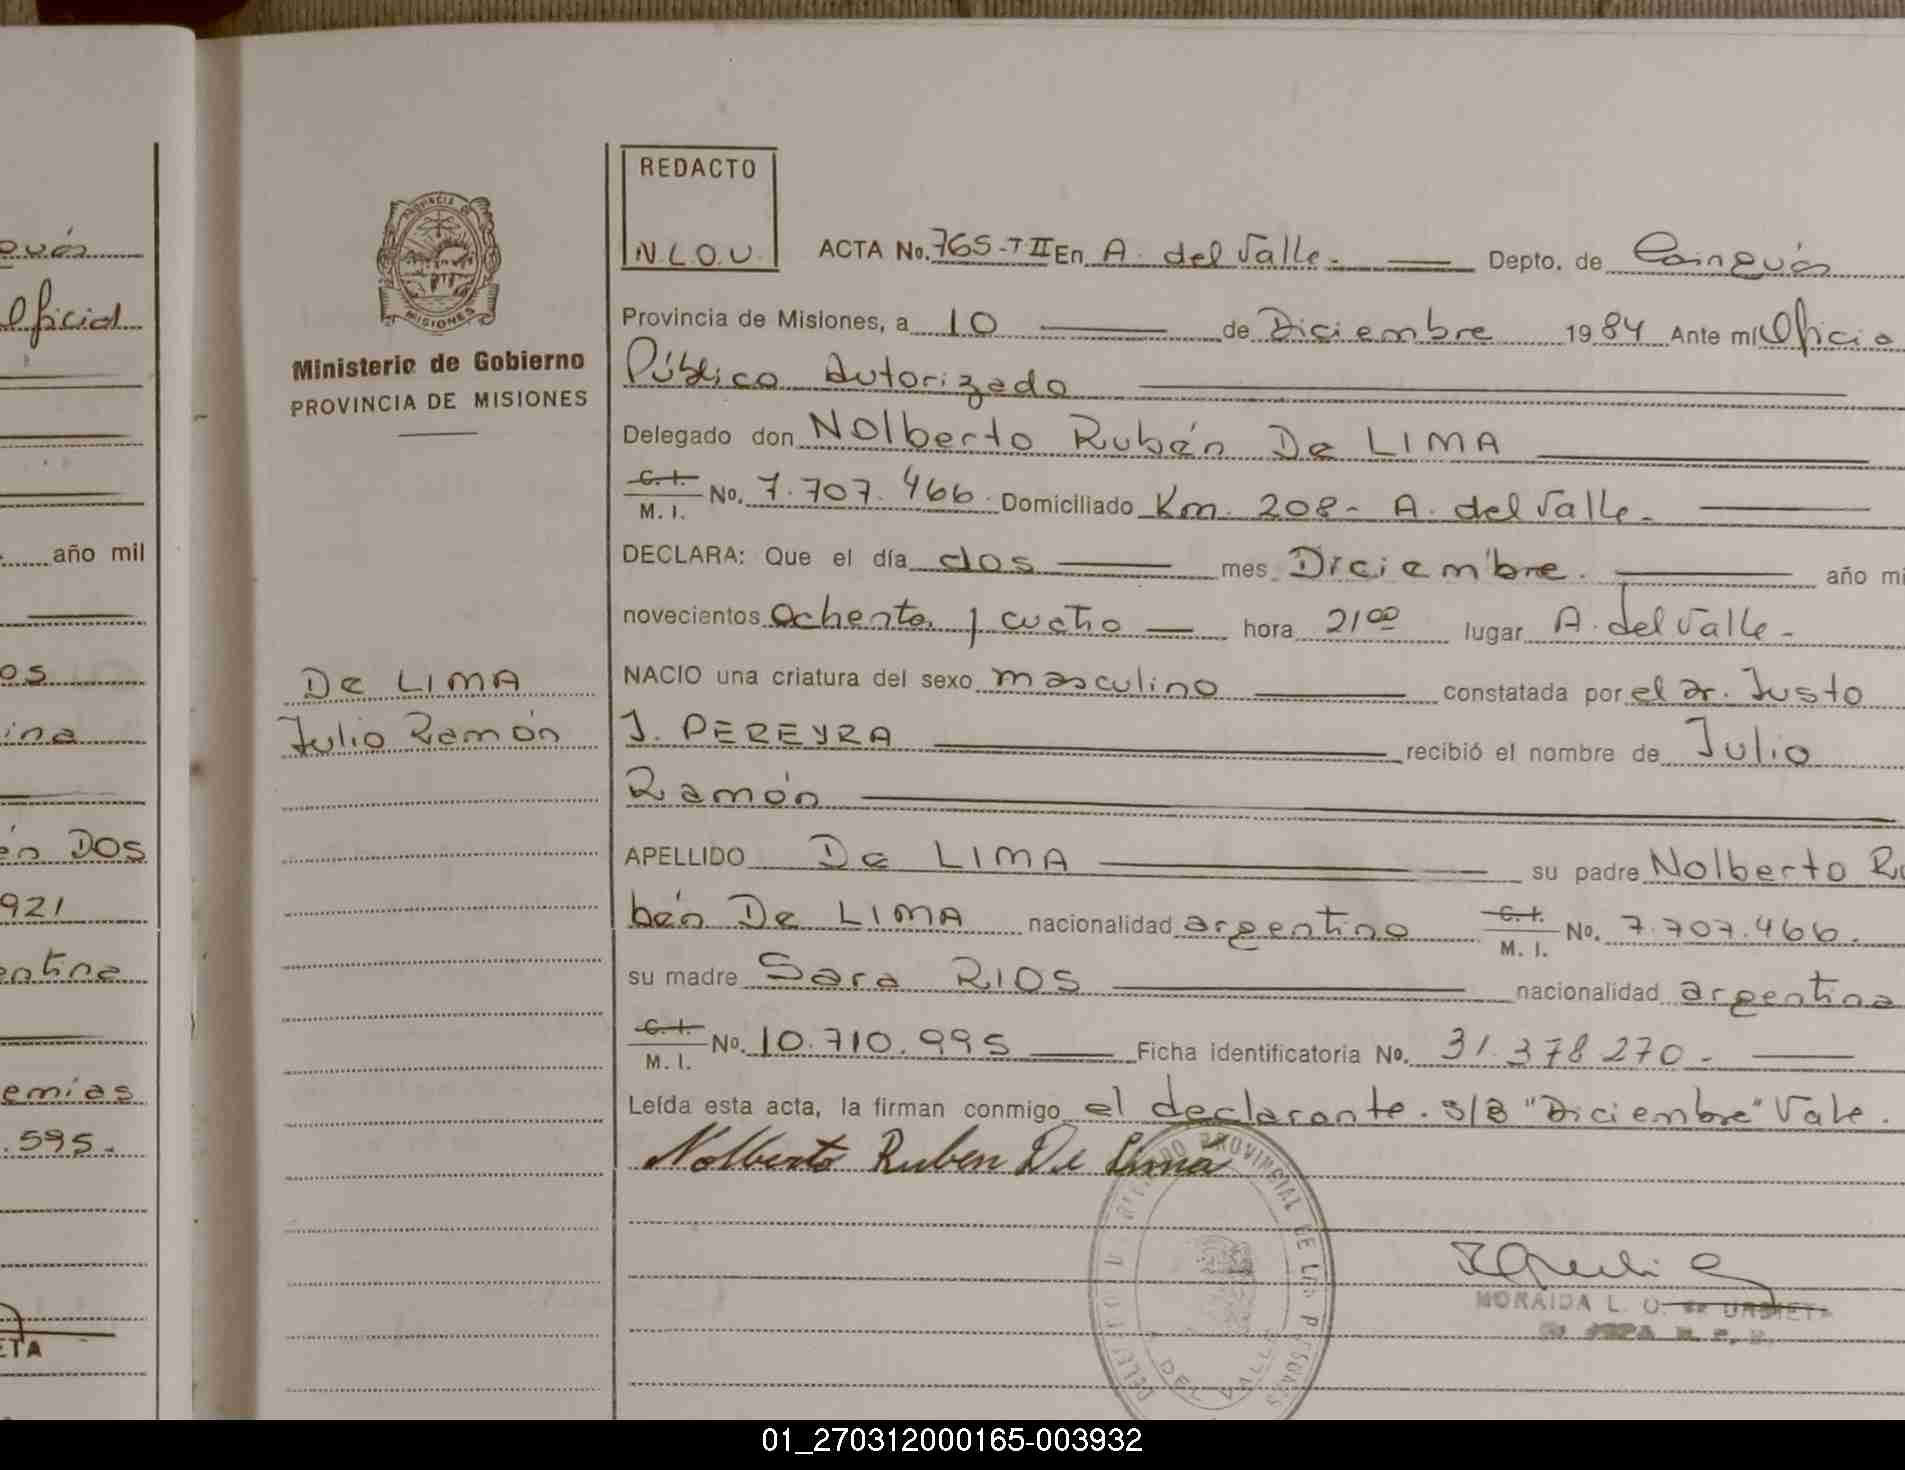 guás
Oficial
año mil
os
ina
én DOS
921
entina
emias
.595.
ETA
PROVINCIA DE
MISIONES
Ministerio de Gobierno
PROVINCIA DE MISIONES
De LIMA
Julio Ramón
REDACTO
N.L.O.U.
ACTA No. 765-T II En A. del Valle. Depto. de Cainguás
Provincia de Misiones, a 10 de Diciembre 1984 Ante mi Oficia
Público Autorizado
Delegado don Nolberto Rubén De LIMA
C. I. M. I. No. 7.707.466. Domiciliado Km. 208- A. del Valle.
DECLARA: Que el día dos mes Diciembre. año mi
novecientos Ochenta y cuatro hora 21 00 lugar A. del Valle-
NACIO una criatura del sexo masculino constatada por el Dr. Justo
J. PEREYRA recibió el nombre de Julio
Ramón
APELLIDO De LIMA su padre Nolberto Ru
bén De LIMA nacionalidad argentino C. I. M. I. No. 7.707.466.
su madre Sara RIOS nacionalidad argentina
C. I. M. I. No. 10.710.995 Ficha identificatoria No. 31.378.270-
Leída esta acta, la firman conmigo el declarante. S/B "Diciembre" Vale.
Nolberto Ruben De Lima
PROVINCIAL DE LAS PERSONAS
DEL VALLE
MORAIDA L. O. de URBIETA
01_270312000165-003932